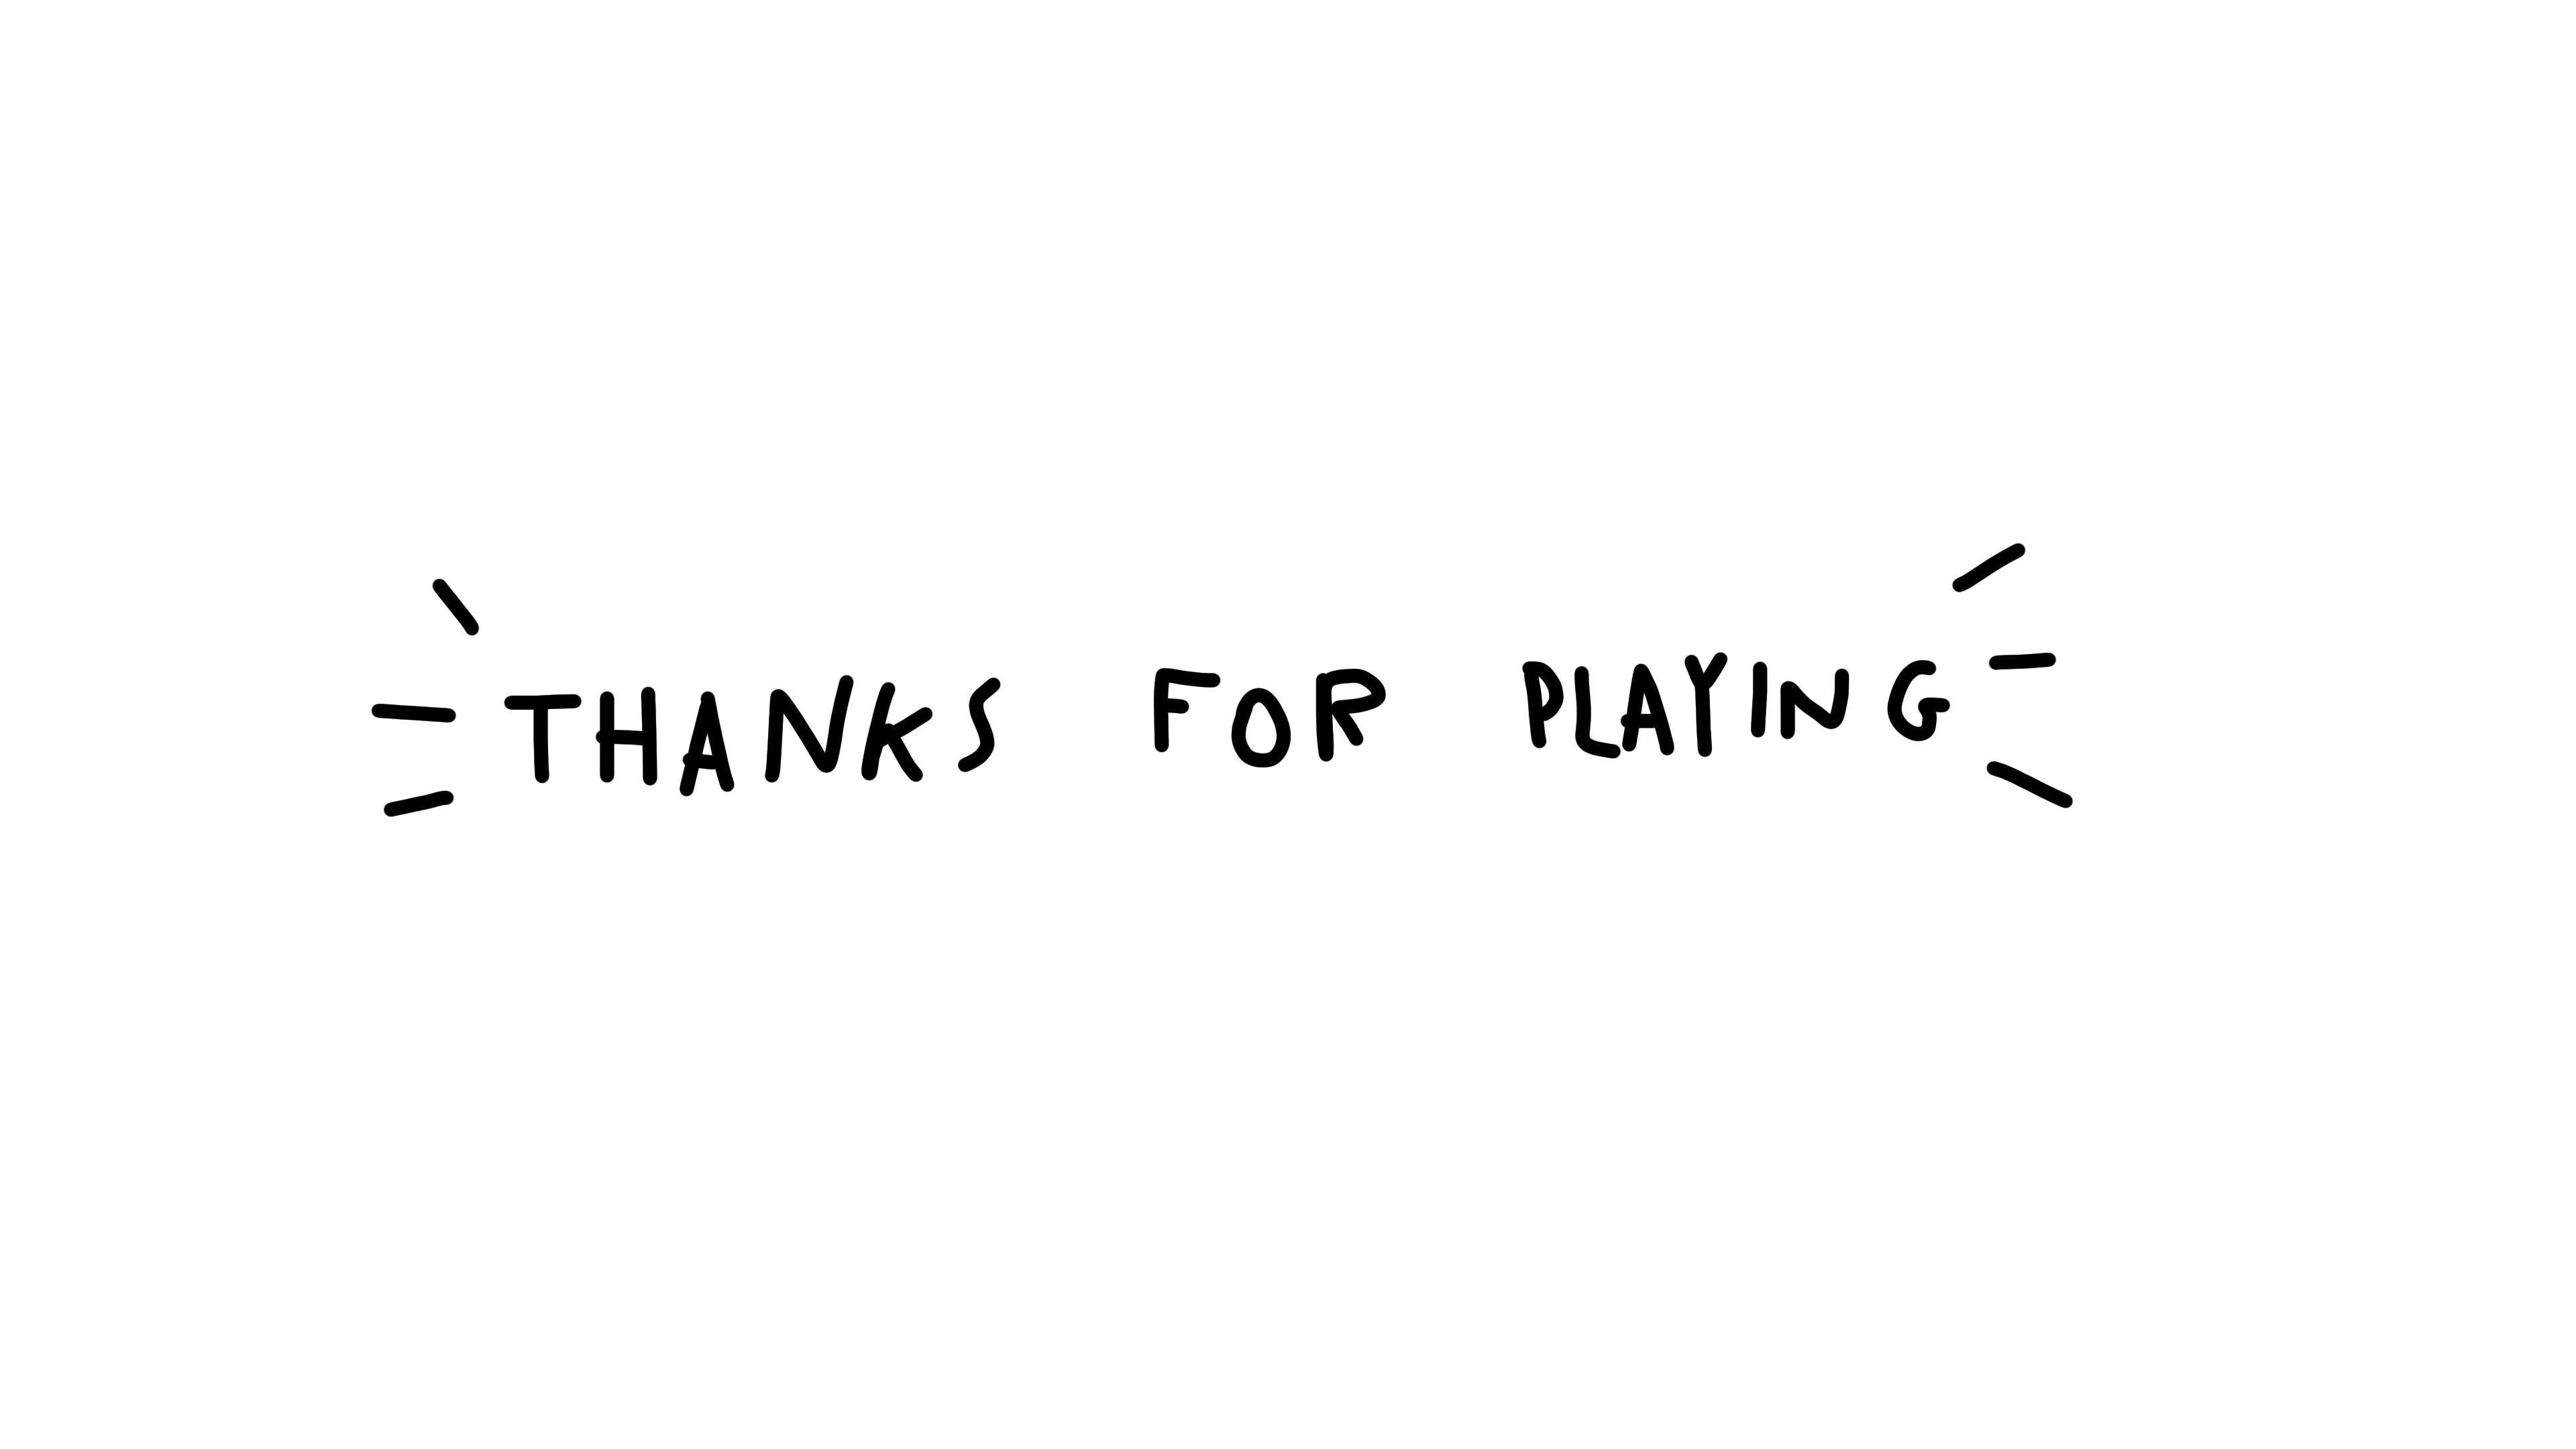 THANKS FOR PLAYING